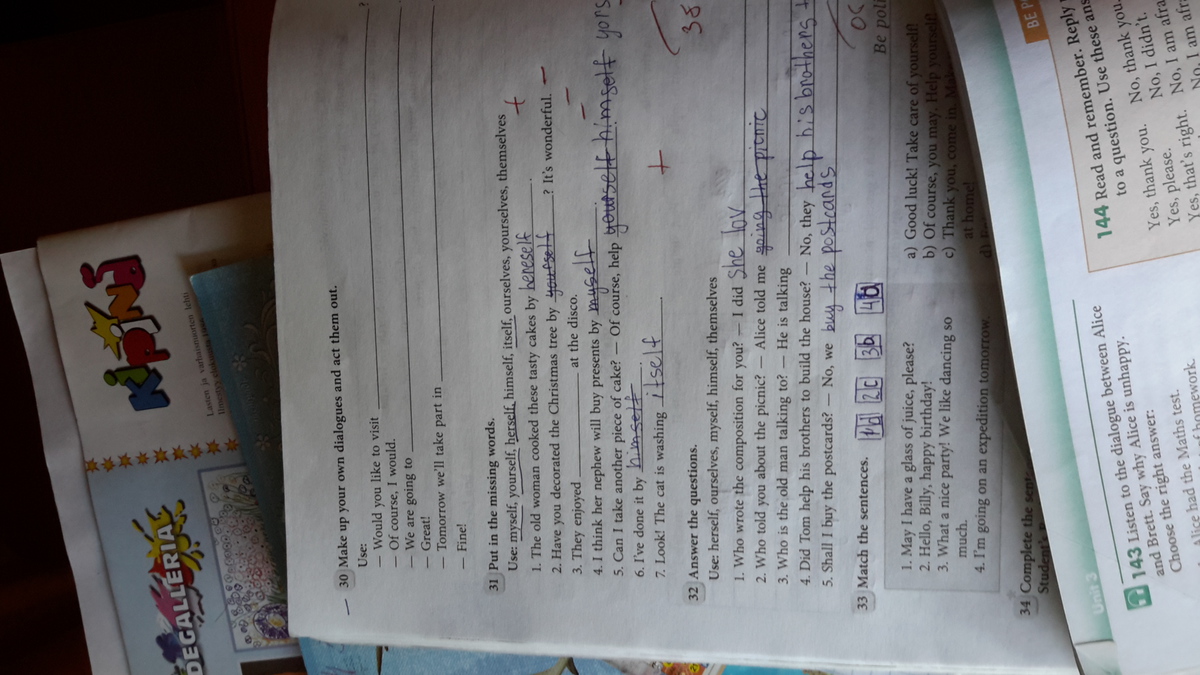 DEGALLERIA
Kiping
30 Make up your own dialogues and act them out.
Use:
— Would you like to visit ?
— Of course, I would.
— We are going to
— Great!
— Tomorrow we'll take part in
— Fine!
31 Put in the missing words.
Use: myself, yourself, herself, himself, itself, ourselves, yourselves, themselves
1. The old woman cooked these tasty cakes by hereself. +
2. Have you decorated the Christmas tree by yourself? It's wonderful. –
3. They enjoyed at the disco. –
4. I think her nephew will buy presents by myself. –
5. Can I take another piece of cake? — Of course, help yourself himself yors
6. I've done it by himself.
7. Look! The cat is washing itself. +
38
32 Answer the questions.
Use: herself, ourselves, myself, himself, themselves
1. Who wrote the composition for you? — I did She lov
2. Who told you about the picnic? — Alice told me going the picnic
3. Who is the old man talking to? — He is talking
4. Did Tom help his brothers to build the house? — No, they help his brothers t
5. Shall I buy the postcards? — No, we buy the postcards
33 Match the sentences. 1d 2c 3b 4a
Be poli
1. May I have a glass of juice, please?
2. Hello, Billy, happy birthday!
3. What a nice party! We like dancing so
much.
4. I'm going on an expedition tomorrow.
a) Good luck! Take care of yourself!
b) Of course, you may. Help yourself!
c) Thank you, come in. Make
at home!
d)
34 Complete the sent
Student's
BE P
Unit 3
143 Listen to the dialogue between Alice
and Brett. Say why Alice is unhappy.
Choose the right answer:
Alice had the Maths test.
homework.
144 Read and remember. Reply
to a question. Use these ans
Yes, thank you. No, thank you.
Yes, please. No, I didn't.
Yes, that's right. No, I am afra
No, I am afr